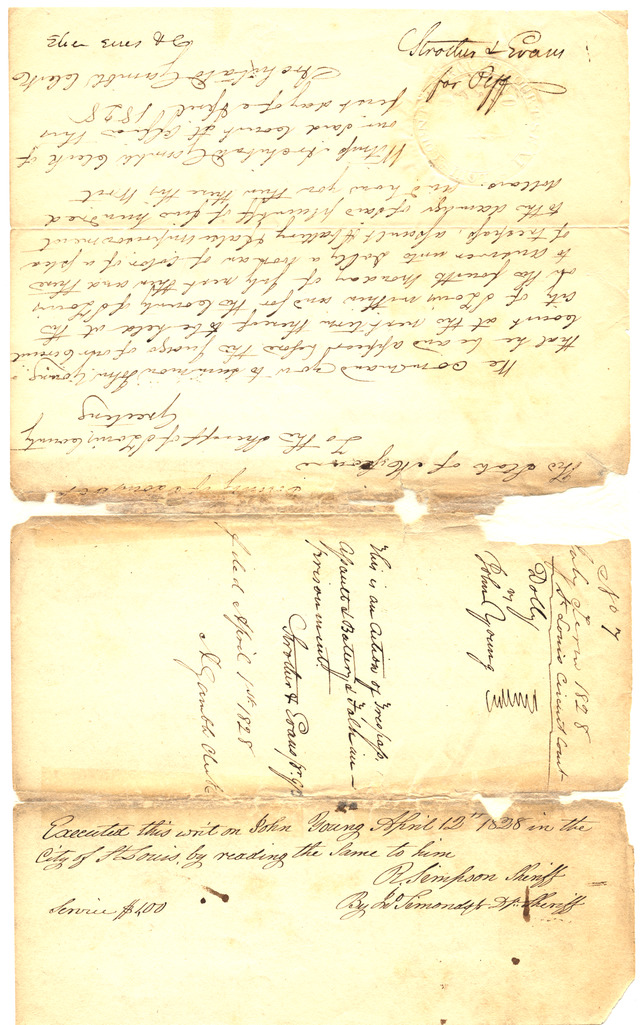 Strother & Evans
for Plff
The State of Missouri
To the Sheriff of St Louis County
Greeting
We command you to summon John Young
that he be and appear before the Judge of our Circuit
Court at the next term thereof to be held at the
City of St Louis within and for the County of St Louis
on the fourth Monday of July next then and there
to answer unto Dolly a woman of Color of a plea
of trespass, assault & battery & false imprisonment
to the damage of said plaintiff of five hundred
dollars. And have you then there this Writ
Witness Archibald Gamble Clerk of
our said Court at St Louis this
first day of April 1828
Archibald Gamble Clerk
No 7
July Term 1828
St Louis Circuit Court
Dolly
vs
John Young
This is an action of Trespass,
Assault & Battery & False im-
prisonment.
Strother & Evans
filed April 1st 1828
A Gamble Clerk
Executed this writ on John Young April 12th 1828 in the
City of St Louis, by reading the same to him
R. Simpson Sheriff
By Jno Simonds Jr Dt. Sheriff
Service $1,00